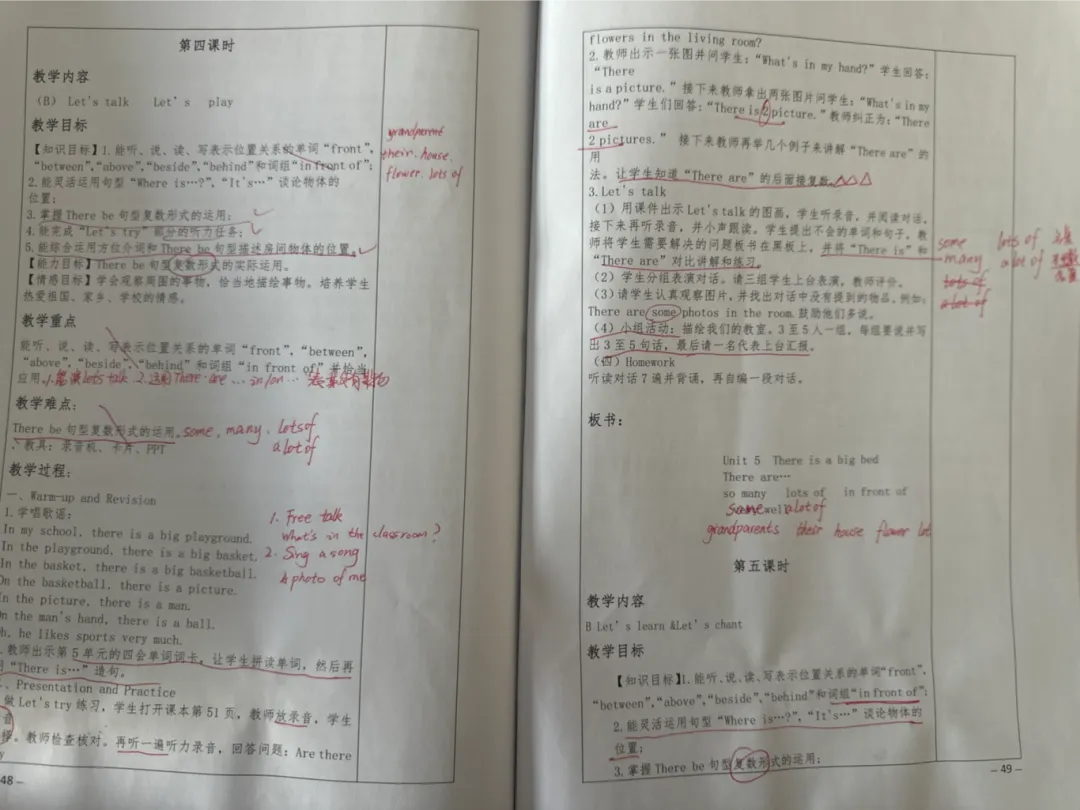 第四课时
教学内容
（B） Let's talk    Let's  play
教学目标
【知识目标】1.能听、说、读、写表示位置关系的单词“front”，
“between”,“above”,“beside”,“behind”和词组“in front of”；
2.能灵活运用句型“Where is…?”，“It's…”谈论物体的
位置；
3.掌握There be 句型复数形式的运用；
4.能完成“Let's try”部分的听力任务；
5.能综合运用方位介词和There be句型描述房间物体的位置。
【能力目标】There be 句型复数形式的实际运用。
【情感目标】学会观察周围的事物，恰当地描绘事物。培养学生
热爱祖国、家乡、学校的情感。
grandparent
their. house.
flower. lots of
教学重点
能听、说、读、写表示位置关系的单词“front”，“between”，
“above”,“beside”,“behind”和词组“in front of”并恰当
应用。
1. lets talk 2. 运用There are … in/on …
教学难点：
There be 句型复数形式的运用。
some, many. lots of
a lot of
教具：录音机、卡片、PPT
教学过程：
一、Warm-up and Revision
1.学唱歌谣：
In my school, there is a big playground.
In the playground, there is a big basket.
In the basket, there is a big basketball.
On the basketball, there is a picture.
In the picture, there is a man.
On the man's hand, there is a ball.
Oh, he likes sports very much.
1. Free talk
What's in the classroom?
2. Sing a song
A photo of me
教师出示第5单元的四会单词词卡，让学生拼读单词，然后再
“There is…”造句。
、Presentation and Practice
做Let's try 练习，学生打开课本第51页，教师放录音，学生
择。教师检查核对。再听一遍听力录音，回答问题：Are there
48 –
flowers in the living room?
2.教师出示一张图并问学生：“What's in my hand?”学生回答：
“There
is a picture.”接下来教师拿出两张图片问学生：“What's in my
hand?”学生们回答：“There is 2 picture.”教师纠正为：“There
are
2 pictures.” 接下来教师再举几个例子来讲解“There are”的
用
法。让学生知道“There are”的后面接复数。
3.Let's talk
（1）用课件出示Let's talk的图画，学生听录音，并阅读对话。
接下来再听录音，并小声跟读。学生提出不会的单词和句子，教
师将学生需要解决的问题板书在黑板上，并将“There is”和
“There are”对比讲解和练习。
（2）学生分组表演对话。请三组学生上台表演，教师评价。
（3）请学生认真观察图片，并找出对话中没有提到的物品。例如：
There are some photos in the room.鼓励他们多说。
（4）小组活动：描绘我们的教室。3至5人一组，每组要说并写
出3至5句话，最后请一名代表上台汇报。
（四）Homework
听读对话7遍并背诵，再自编一段对话。
some lots of
many a lot of
lots of
a lot of
板书：
Unit 5  There is a big bed
There are…
so many   lots of   in front of
some well a lot of
grandparents their house flower lot
第五课时
教学内容
B Let's learn &Let's chant
教学目标
【知识目标】1.能听、说、读、写表示位置关系的单词“front”，
“between”,“above”,“beside”,“behind”和词组“in front of”；
2.能灵活运用句型“Where is…?”，“It's…”谈论物体的
位置；
3.掌握There be 句型复数形式的运用；
– 49 –